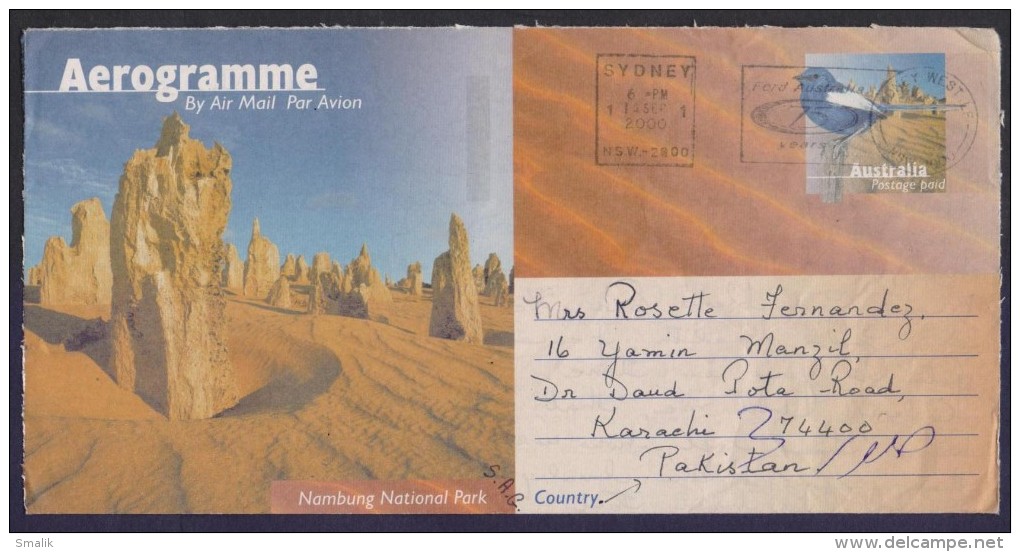 Aerogramme
By Air Mail Par Avion
SYDNEY
6 -PM
1 12 SEP 1
2000
N.S.W.-2800
Ford Australia
75
years
WEST
Australia
Postage paid
Mrs Rosette Fernandez,
16 Yamin Manzil,
Dr Daud Pota Road,
Karachi 74400
Pakistan
S.A.G.
Nambung National Park
Country
Smalik
delcampe.net